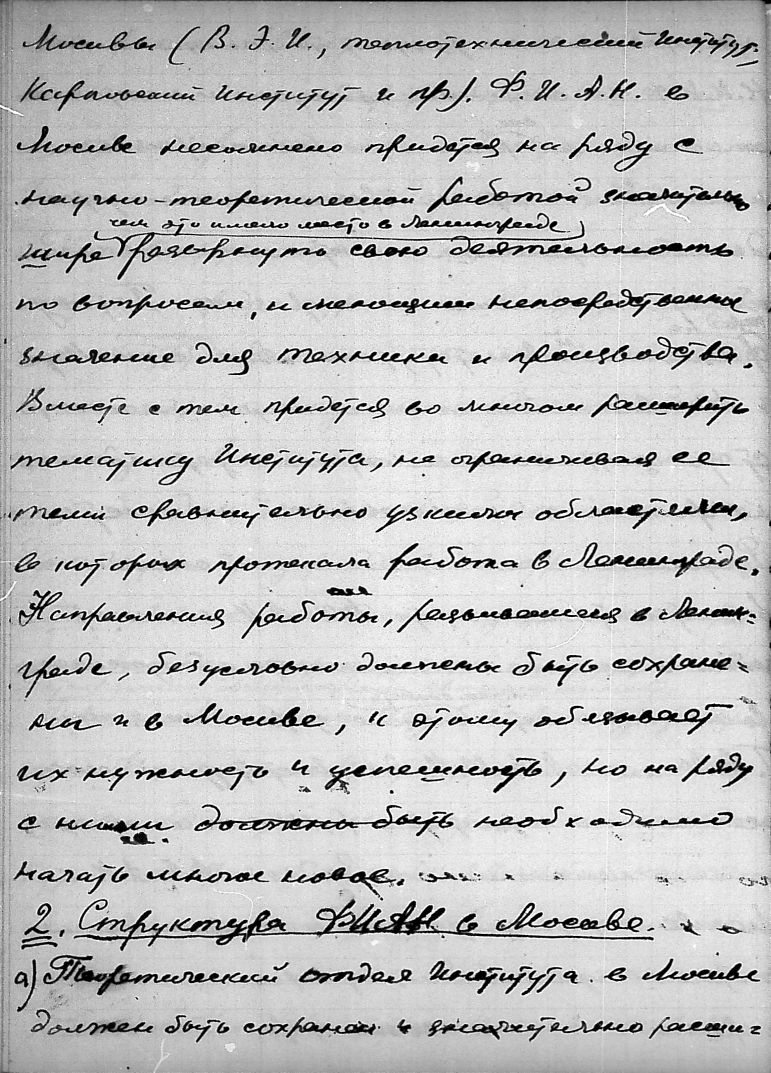 Москвы (В.Э.И., теплотехнический Институт,
Карповский Институт и пр.). Ф.И.А.Н. в
Москве несомнено придется на ряду с
научно-теоретической работой значительно
чем это имело место в Ленинграде
шире развернуть свою деятельность
по вопросам, имеющим непосредственное
значение для техники и производства.
Вместе с тем придется во многом расширить
тематику Института, не ограничивая ее
теми сравнительно узкими областями,
в которых протекала работа в Ленинграде.
Направления работы, развивашиеся в Ленин-
граде, безусловно должны быть сохране-
ны и в Москве, к этому обязывает
их нужность и успешность, но на ряду
с ними должны быть необходимо
начать многое новое.
2. Структура ФИАН в Москве.
а) Теоретический отдел Института в Москве
должен быть сохранен и значительно расши-